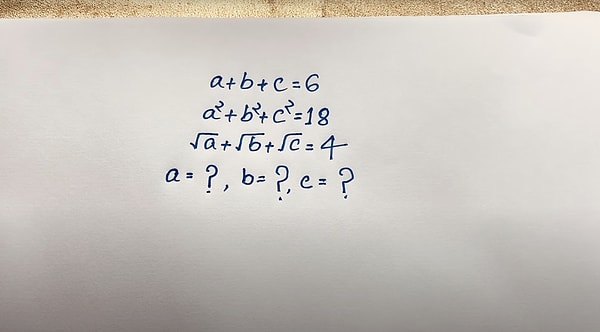 a+b+c=6
a²+b²+c²=18
√a+√b+√c=4
a=?, b=?, c=?